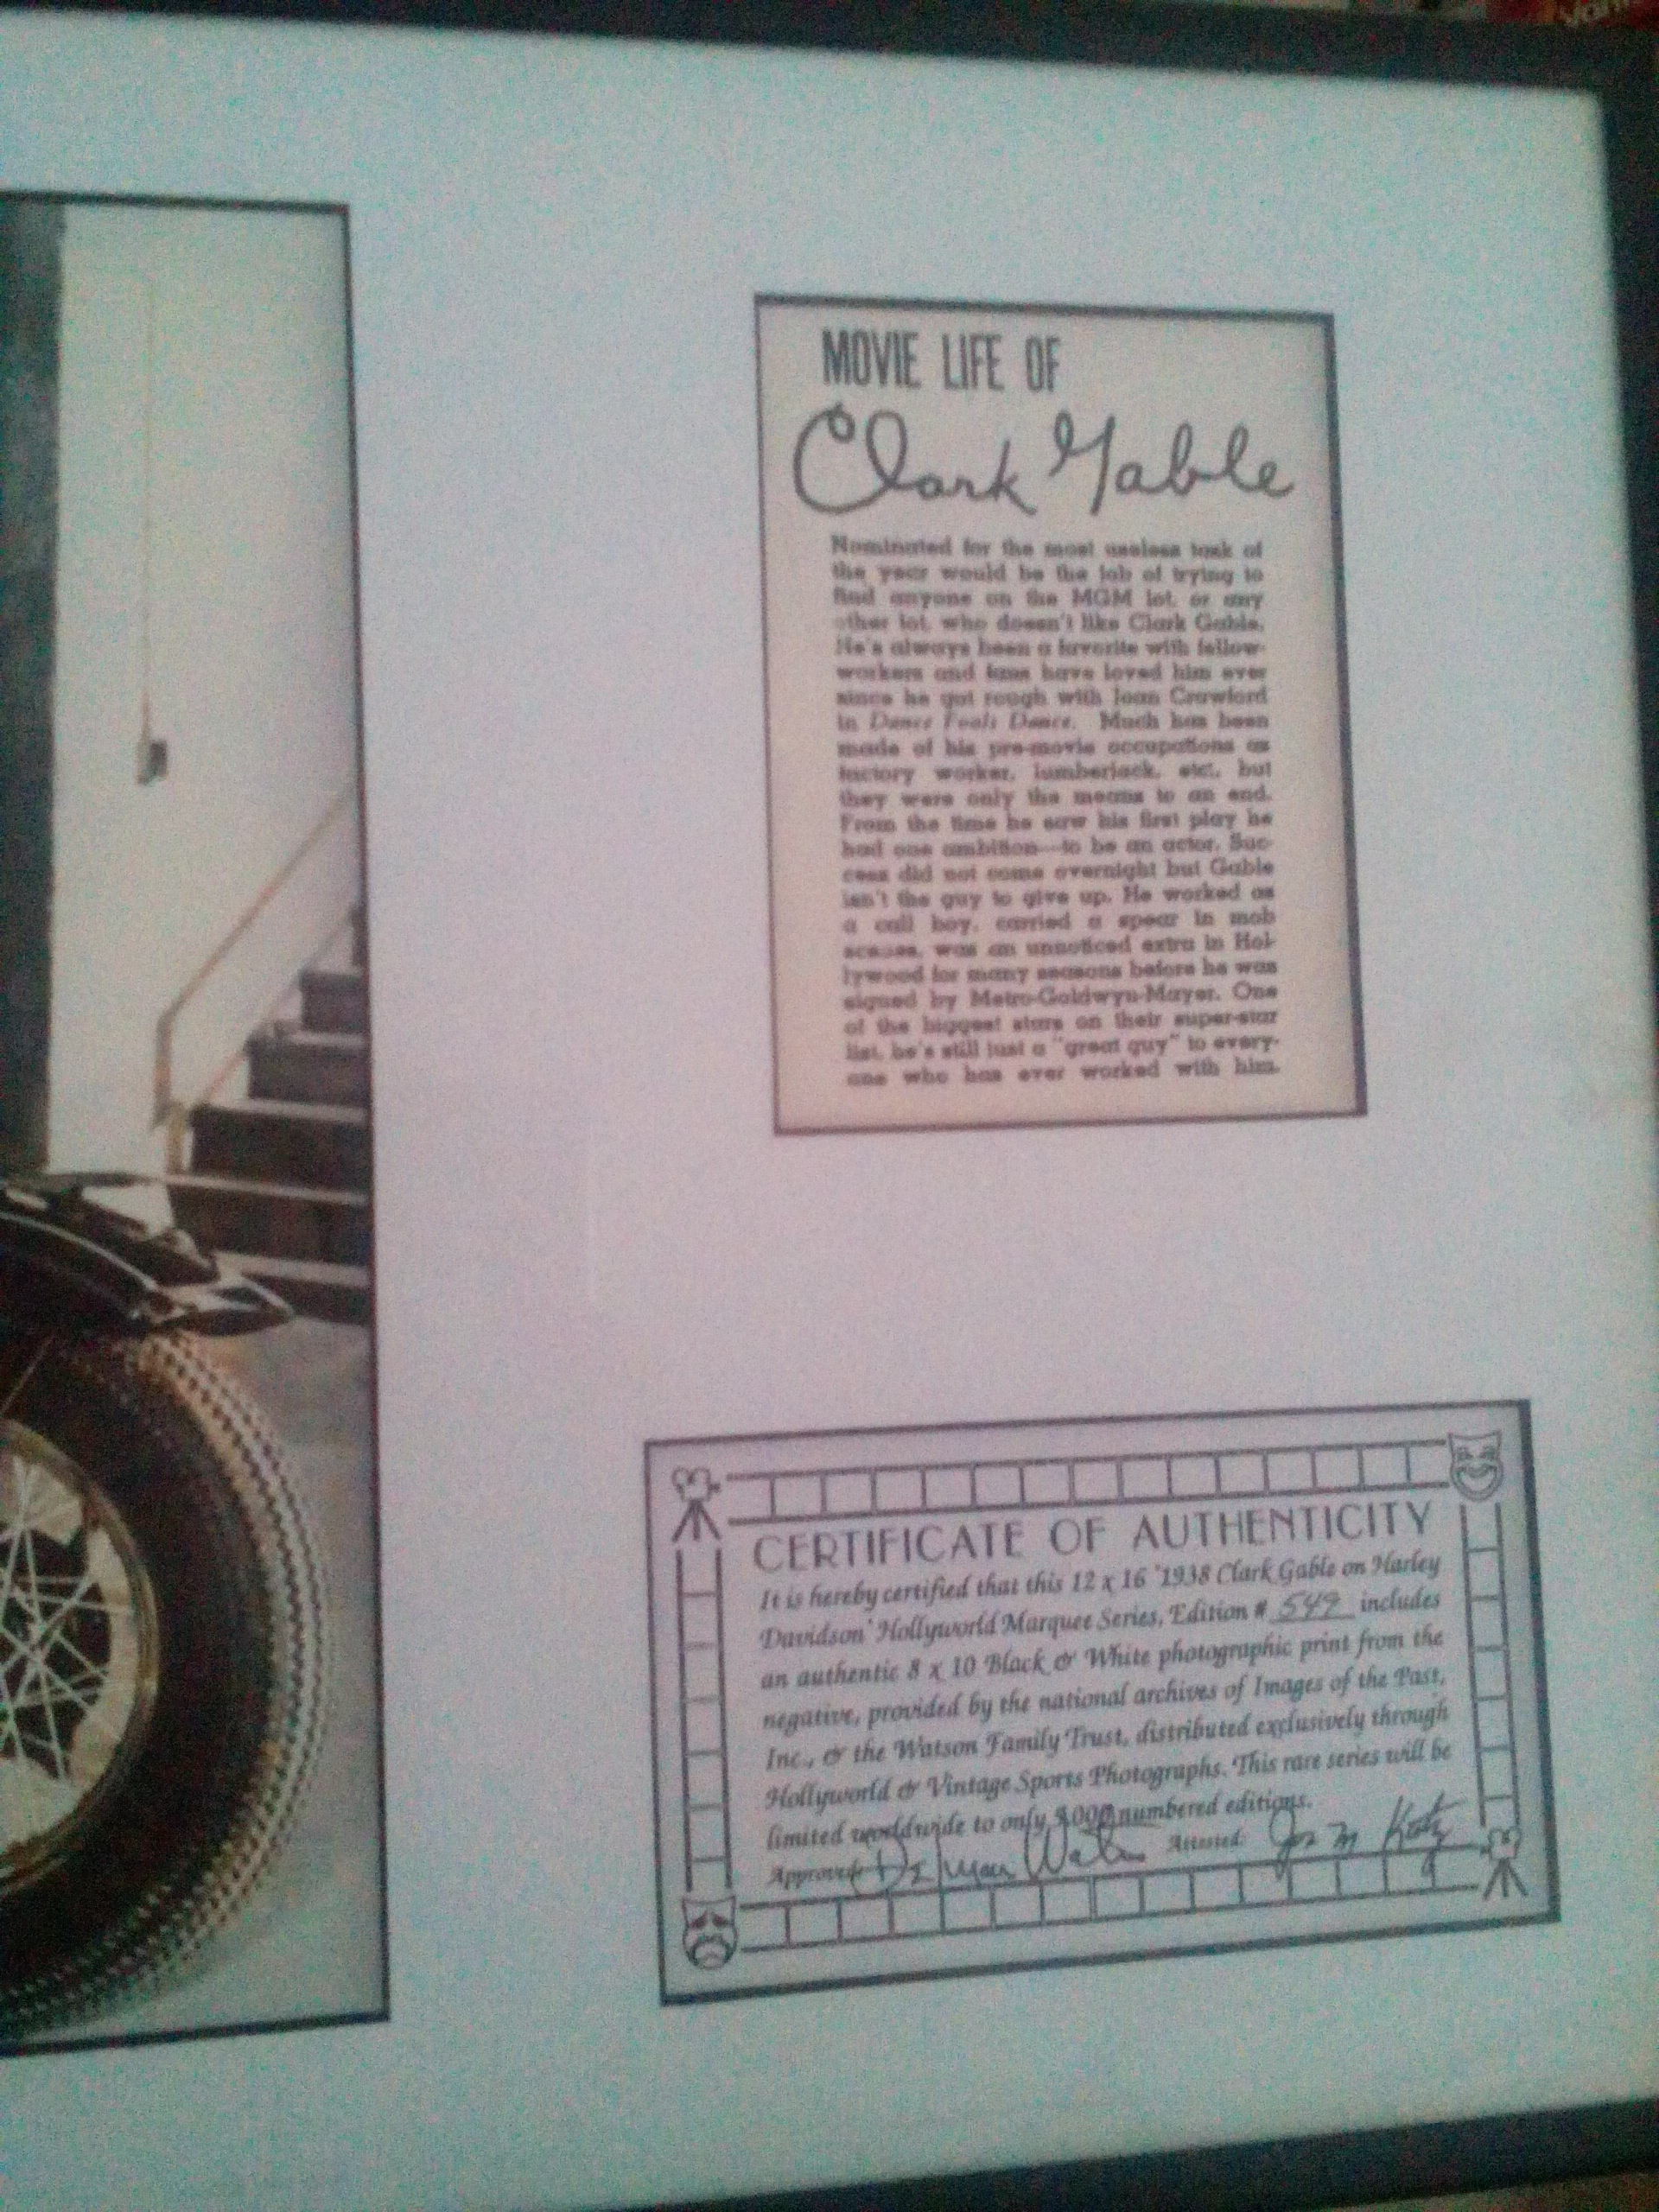 MOVIE LIFE OF
Clark Gable
Nominated for the most useless task of
the year would be the job of trying to
find anyone on the MGM lot, or any
other lot, who doesn't like Clark Gable.
He's always been a favorite with fellow-
workers and fans have loved him ever
since he got rough with Joan Crawford
in Dance Fools Dance. Much has been
made of his pre-movie occupations as
factory worker, lumberjack, etc., but
they were only the means to an end.
From the time he saw his first play he
had one ambition—to be an actor. Suc-
cess did not come overnight but Gable
isn't the guy to give up. He worked as
a call boy, carried a spear in mob
scenes, was an unnoticed extra in Hol-
lywood for many seasons before he was
signed by Metro-Goldwyn-Mayer. One
of the biggest stars on their super-star
list, he's still just a "great guy" to every-
one who has ever worked with him.
CERTIFICATE OF AUTHENTICITY
It is hereby certified that this 12 x 16 '1938 Clark Gable on Harley
Davidson' Hollyworld Marquee Series, Edition # 549 includes
an authentic 8 x 10 Black & White photographic print from the
negative, provided by the national archives of Images of the Past,
Inc., & the Watson Family Trust, distributed exclusively through
Hollyworld & Vintage Sports Photographs. This rare series will be
limited worldwide to only numbered editions.
Approved: Attested: